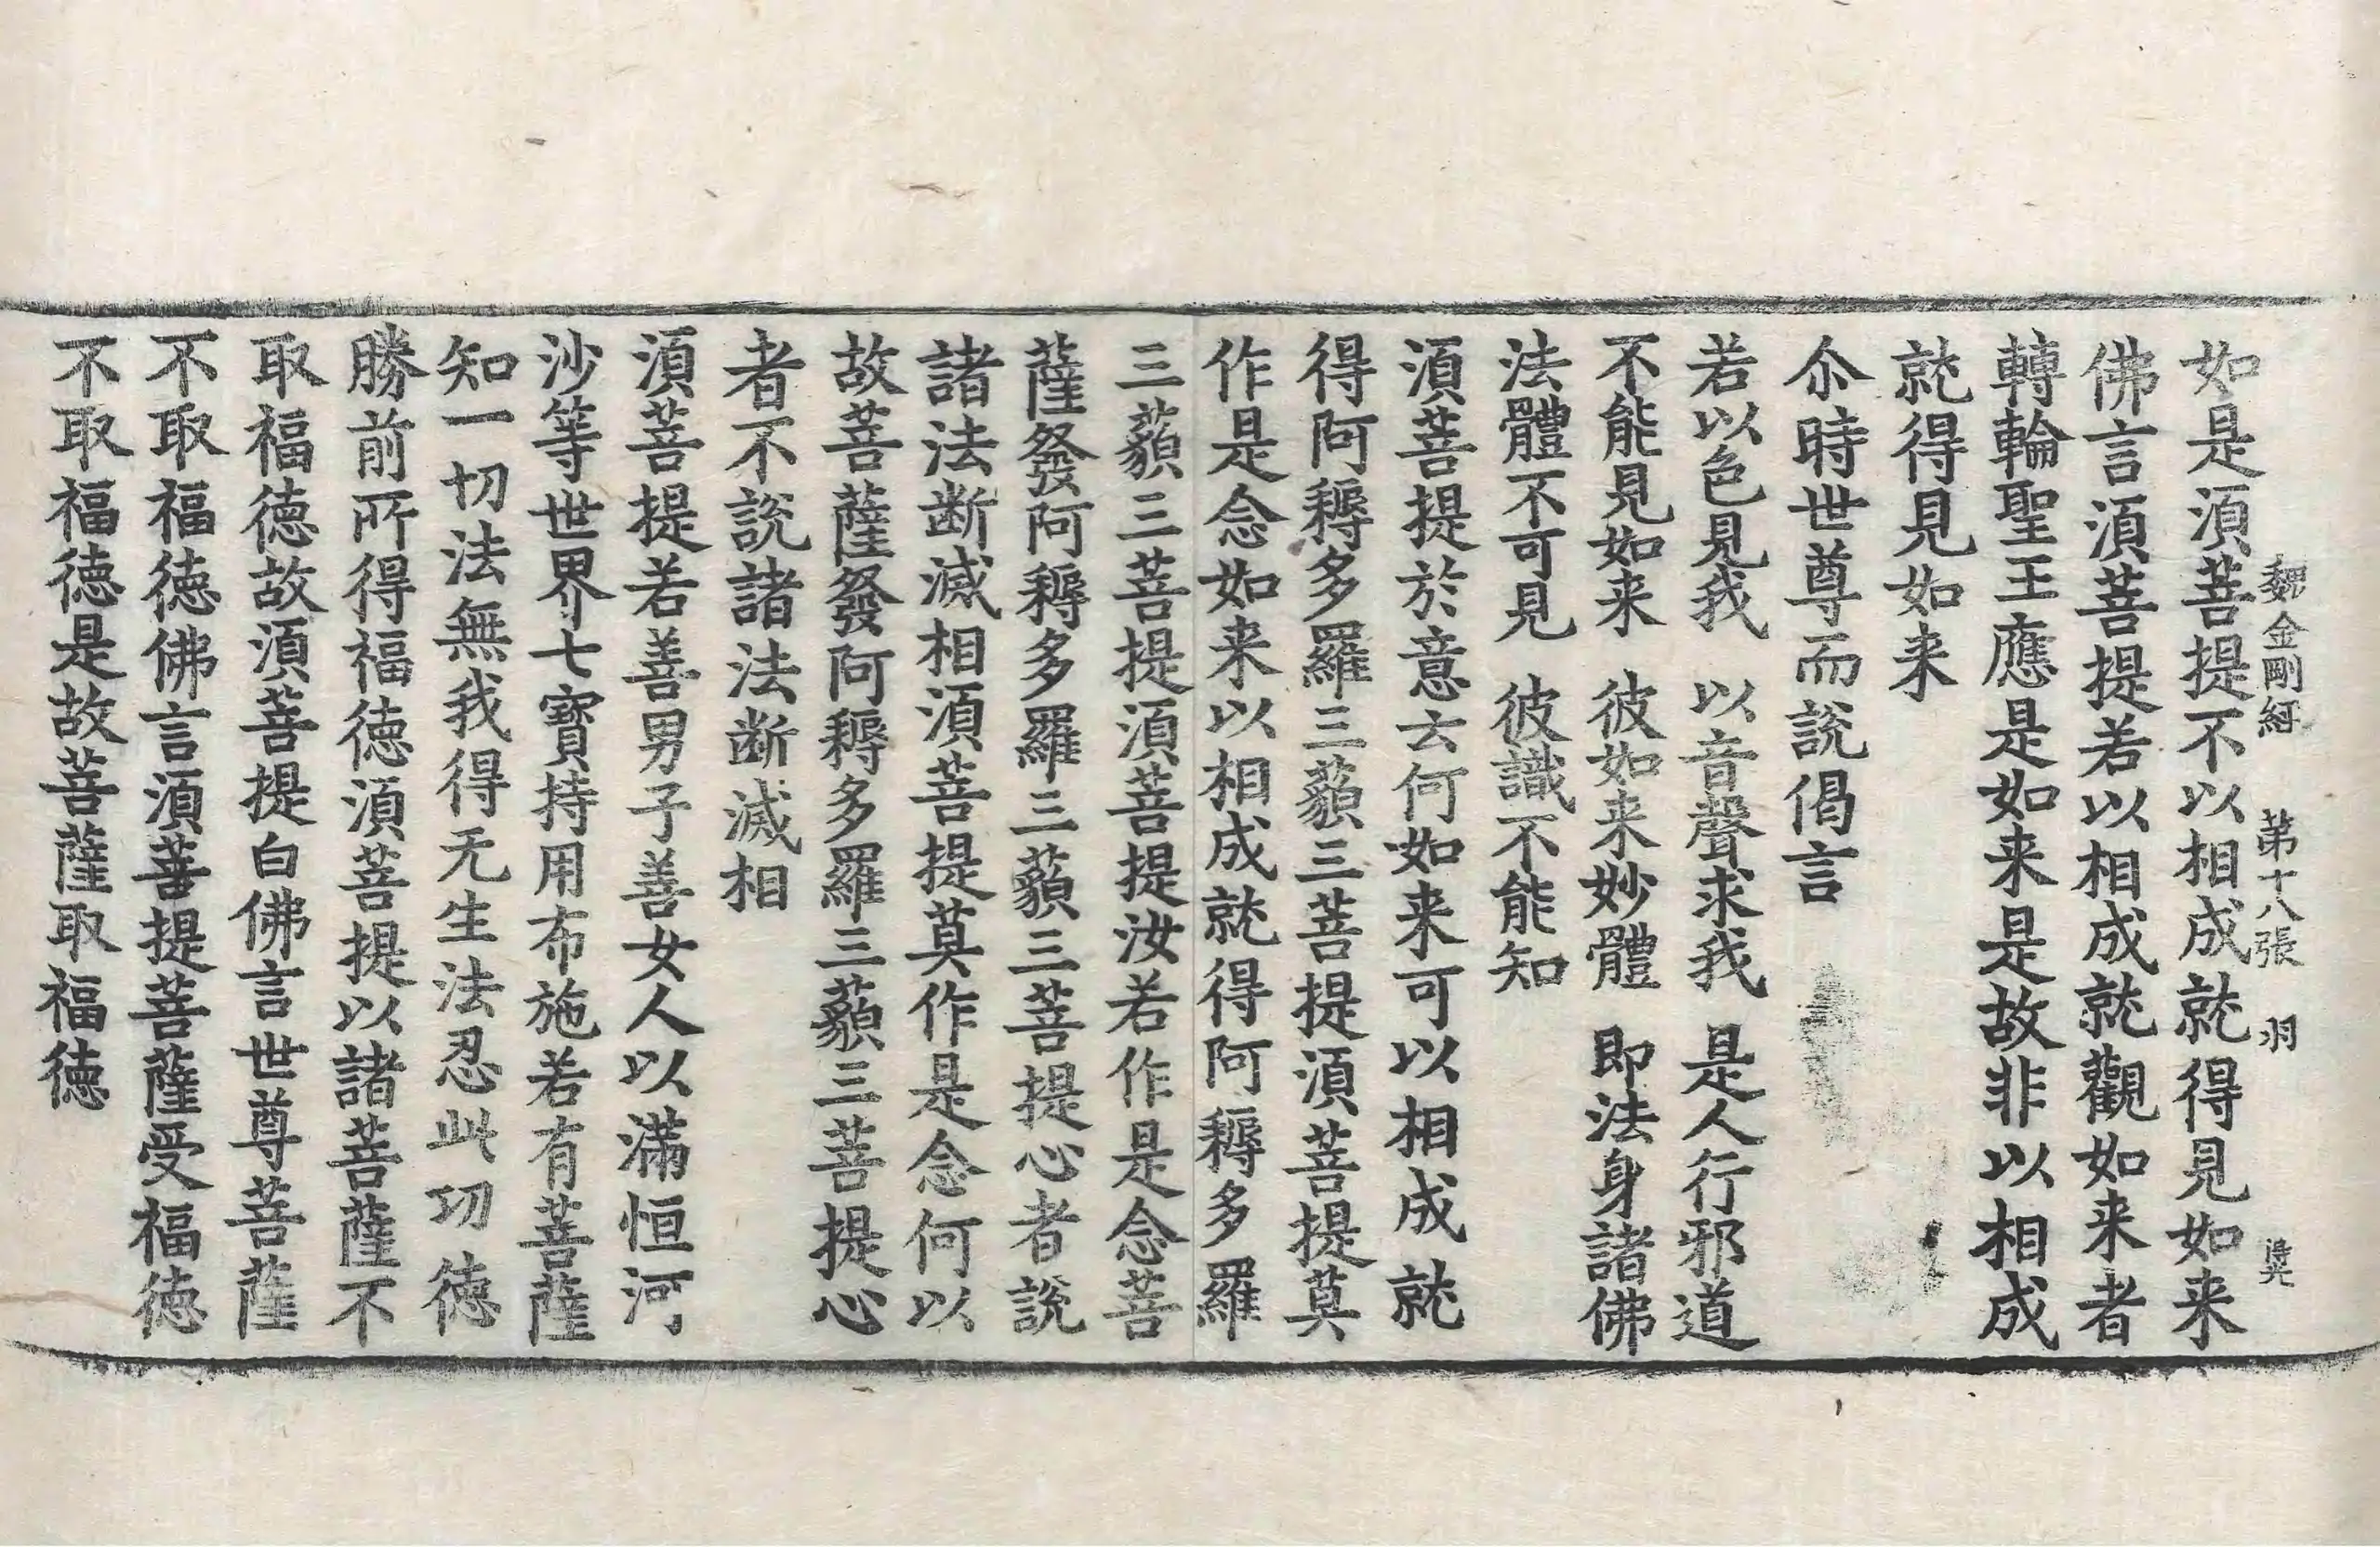 如是湏菩提不以相成就得見如来
魏金剛經　第十八張　羽
佛言湏菩提若以相成就觀如来者
轉輪聖王應是如来是故非以相成
就得見如来
尒時世尊而說偈言
若以色見我　以音聲求我　是人行邪道
不能見如来　彼如来妙體　即法身諸佛
法體不可見　彼識不能知
湏菩提於意云何如来可以相成就
得阿耨多羅三藐三菩提湏菩提莫
作是念如来以相成就得阿耨多羅
三藐三菩提湏菩提汝若作是念菩
薩發阿耨多羅三藐三菩提心者說
諸法断滅相湏菩提莫作是念何以
故菩薩發阿耨多羅三藐三菩提心
者不說諸法断滅相
湏菩提若善男子善女人以滿恒河
沙等世界七寶持用布施若有菩薩
知一切法無我得无生法忍此功徳
勝前所得福徳湏菩提以諸菩薩不
取福徳故湏菩提白佛言世尊菩薩
不取福徳佛言湏菩提菩薩受福徳
不取福徳是故菩薩取福徳